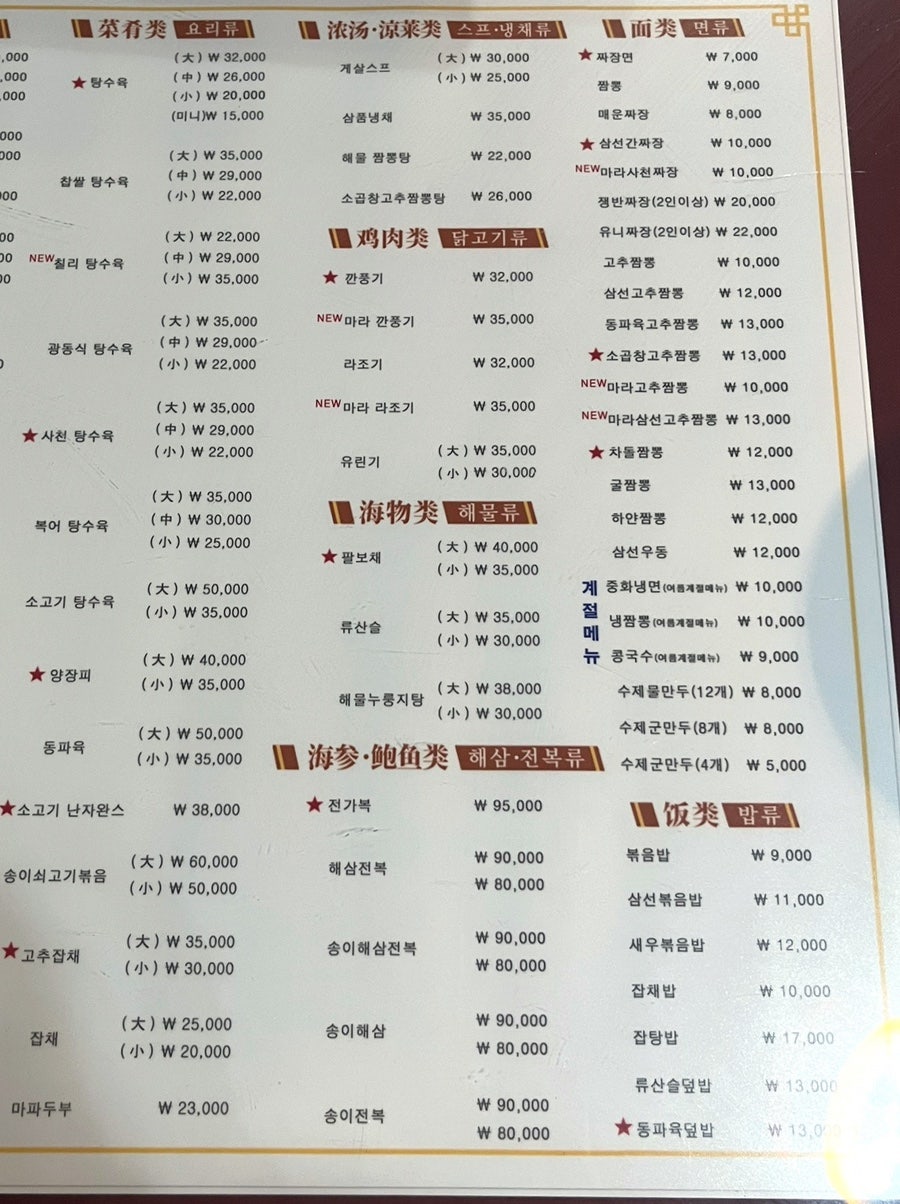 ,000
,000
,000
000
000
00
00
00
0
菜肴类 요리류
★탕수육 (大) ₩ 32,000
(中) ₩ 26,000
(小) ₩ 20,000
(미니)₩ 15,000
찹쌀 탕수육 (大) ₩ 35,000
(中) ₩ 29,000
(小) ₩ 22,000
NEW칠리 탕수육 (大) ₩ 22,000
(中) ₩ 29,000
(小) ₩ 35,000
광동식 탕수육 (大) ₩ 35,000
(中) ₩ 29,000
(小) ₩ 22,000
★사천 탕수육 (大) ₩ 35,000
(中) ₩ 29,000
(小) ₩ 22,000
복어 탕수육 (大) ₩ 35,000
(中) ₩ 30,000
(小) ₩ 25,000
소고기 탕수육 (大) ₩ 50,000
(小) ₩ 35,000
★양장피 (大) ₩ 40,000
(小) ₩ 35,000
동파육 (大) ₩ 50,000
(小) ₩ 35,000
★소고기 난자완스 ₩ 38,000
송이쇠고기볶음 (大) ₩ 60,000
(小) ₩ 50,000
★고추잡채 (大) ₩ 35,000
(小) ₩ 30,000
잡채 (大) ₩ 25,000
(小) ₩ 20,000
마파두부 ₩ 23,000
浓汤·涼菜类 스프·냉채류
게살스프 (大) ₩ 30,000
(小) ₩ 25,000
삼품냉채 ₩ 35,000
해물 짬뽕탕 ₩ 22,000
소곱창고추짬뽕탕 ₩ 26,000
鸡肉类 닭고기류
★깐풍기 ₩ 32,000
NEW마라 깐풍기 ₩ 35,000
라조기 ₩ 32,000
NEW마라 라조기 ₩ 35,000
유린기 (大) ₩ 35,000
(小) ₩ 30,000
海物类 해물류
★팔보채 (大) ₩ 40,000
(小) ₩ 35,000
류산슬 (大) ₩ 35,000
(小) ₩ 30,000
해물누룽지탕 (大) ₩ 38,000
(小) ₩ 30,000
海参·鲍鱼类 해삼·전복류
★전가복 ₩ 95,000
해삼전복 ₩ 90,000
₩ 80,000
송이해삼전복 ₩ 90,000
₩ 80,000
송이해삼 ₩ 90,000
₩ 80,000
송이전복 ₩ 90,000
₩ 80,000
面类 면류
★짜장면 ₩ 7,000
짬뽕 ₩ 9,000
매운짜장 ₩ 8,000
★삼선간짜장 ₩ 10,000
NEW마라사천짜장 ₩ 10,000
쟁반짜장(2인이상) ₩ 20,000
유니짜장(2인이상) ₩ 22,000
고추짬뽕 ₩ 10,000
삼선고추짬뽕 ₩ 12,000
동파육고추짬뽕 ₩ 13,000
★소곱창고추짬뽕 ₩ 13,000
NEW마라고추짬뽕 ₩ 10,000
NEW마라삼선고추짬뽕 ₩ 13,000
★차돌짬뽕 ₩ 12,000
굴짬뽕 ₩ 13,000
하얀짬뽕 ₩ 12,000
삼선우동 ₩ 12,000
계절메뉴
중화냉면(여름계절메뉴) ₩ 10,000
냉짬뽕(여름계절메뉴) ₩ 10,000
콩국수(여름계절메뉴) ₩ 9,000
수제물만두(12개) ₩ 8,000
수제군만두(8개) ₩ 8,000
수제군만두(4개) ₩ 5,000
饭类 밥류
볶음밥 ₩ 9,000
삼선볶음밥 ₩ 11,000
새우볶음밥 ₩ 12,000
잡채밥 ₩ 10,000
잡탕밥 ₩ 17,000
류산슬덮밥 ₩ 13,000
★동파육덮밥 ₩ 13,0